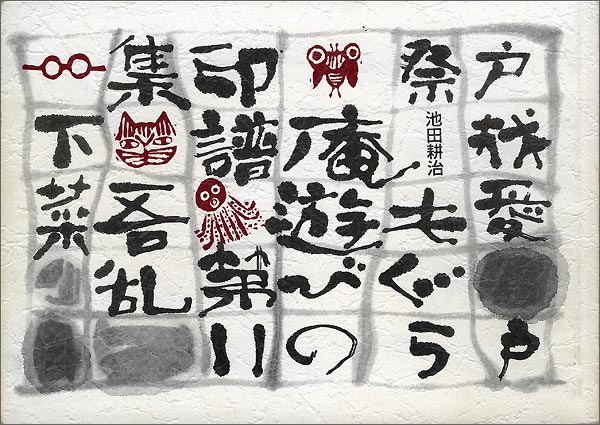 戸愛戸
祭
池田耕治
もぐら
庵遊びの
印譜第II
集吾乱
下菜